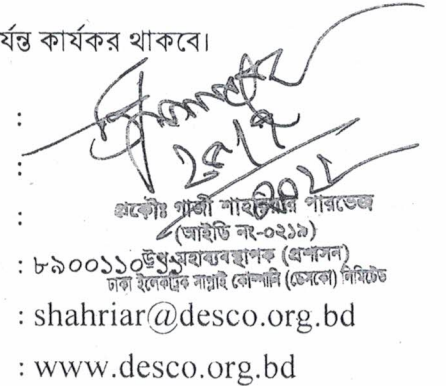 র্যন্ত কার্যকর থাকবে।
:
:
:
প্রকৌঃ গাজী শাহরিয়ার পারভেজ
(আইডি নং-০২১৯)
উপ-মহাব্যবস্থাপক (প্রশাসন)
: ৮৯০০১১০
ঢাকা ইলেকট্রিক সাপ্লাই কোম্পানি (ডেসকো) লিমিটেড
: shahriar@desco.org.bd
: www.desco.org.bd